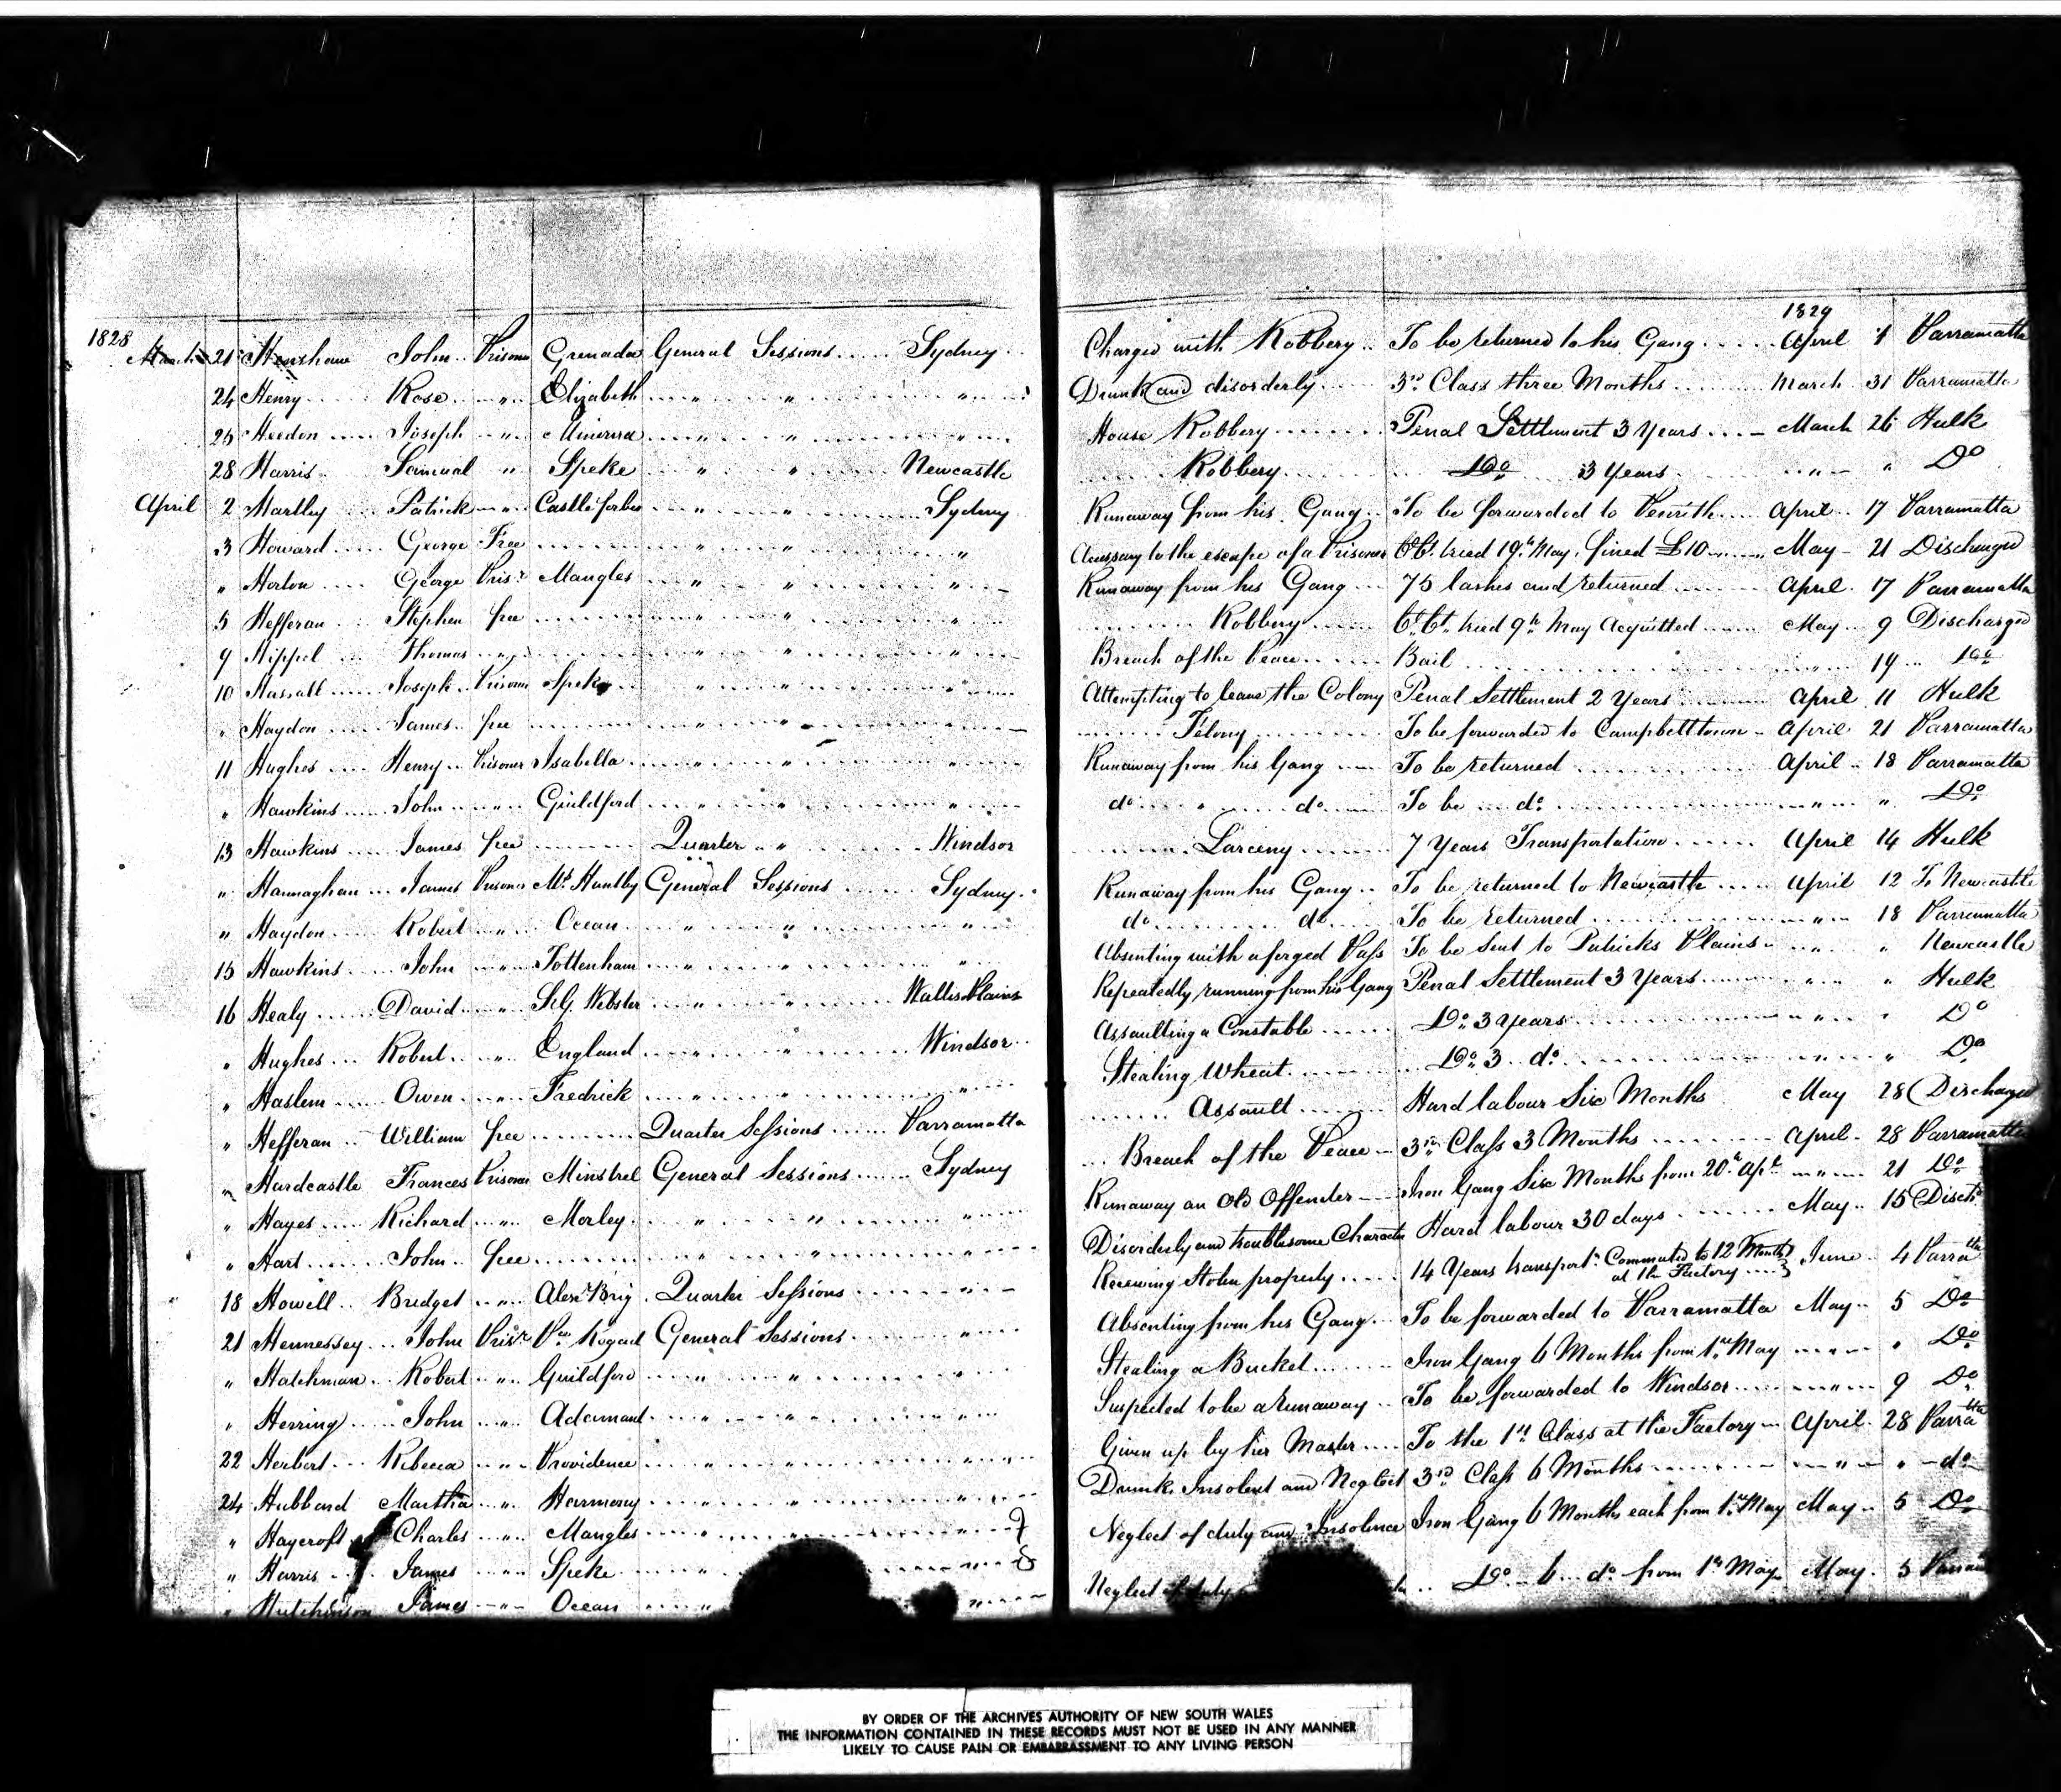 1828
March 21 Henshaw John Prisoner Grenada General Sessions Sydney
24 Henry Rose " Elizabeth " " "
25 Heedon Joseph " Minerva " " "
28 Harris Samual " Speke " " Newcastle
April 2 Martley Patrick " Castle forbes " " Sydney
3 Howard George Free " "
" Horton George Pris.r Mangles " " "
5 Hefferan Stephen free " " "
9 Hippel Thomas " " " "
10 Hassall Joseph Prisoner Speke " " "
" Haydon James free " " "
11 Hughes Henry Prisoner Isabella " " "
" Hawkins John " Guildford " " "
13 Hawkins James free Quarter " Windsor
" Hannaghan James Prisoner Ms. Huntley General Sessions Sydney
" Haydon Robert " Ocean " " "
15 Hawkins John " Tottenham " " "
16 Healy David " Sr. G. Webster " " Wallis Plains
" Hughes Robert " England " " Windsor
" Haslem Owen " Fredrick " " "
" Hefferan William free Quarter Sessions Parramatta
" Hardcastle Frances Prisoner Minstrel General Sessions Sydney
" Hayes Richard " Morley " " "
" Hart John free " " "
18 Howell Bridget " Alexr. Brig Quarter Sessions "
21 Hennessey John Pris.r Pce. Regent General Sessions "
" Hatchman Robert " Guildford " " "
" Herring John " Adamant " " "
22 Herbert Rebecca " Providence " " "
24 Hubbard Martha " Harmony " " "
" Haycroft Charles " Mangles " " "
" Harris James " Speke "
" Hutchinson James " Ocean " "
1829
Charged with Robbery To be returned to his Gang April 1 Parramatta
Drunk and disorderly 3rd Class three Months March 31 Parramatta
House Robbery Penal Settlement 3 Years March 26 Hulk
Robbery Do 3 Years " " Do
Runaway from his Gang To be forwarded to Penrith April 17 Parramatta
Accessary to the escape of a Prisoner Ct. Ct. tried 19th May, fined £10 May 21 Discharged
Runaway from his Gang 75 lashes and returned April 17 Parramatta
Robbery Ct. Ct. tried 9th May Acquitted May 9 Discharged
Breach of the Peace Bail " 19 Do
Attempting to leave the Colony Penal Settlement 2 Years April 11 Hulk
Felony To be forwarded to Campbelltown April 21 Parramatta
Runaway from his Gang To be returned April 18 Parramatta
do " do To be do " " Do
Larceny 7 Years Transportation April 14 Hulk
Runaway from his Gang To be returned to Newcastle April 12 To Newcastle
do do To be returned " 18 Parramatta
Absenting with a forged Pass To be Sent to Patricks Plains " " Newcastle
Repeatedly running from his Gang Penal Settlement 3 Years " " Hulk
Assaulting a Constable Do 3 Years " " Do
Stealing Wheat Do 3 do " " Do
Assault Hard labour Six Months May 28 Discharged
Breach of the Peace 3rd Class 3 Months April 28 Parramatta
Runaway an Old Offender Iron Gang Six Months from 20th Apl. " 21 Do
Disorderly and troublesome Character Hard labour 30 days May 15 Disch.
Receiving Stolen property 14 Years transport.n Commuted to 12 Months at the Factory June 4 Parratta
Absenting from his Gang To be forwarded to Parramatta May 5 Do
Stealing a Bucket Iron Gang 6 Months from 1st May " " Do
Suspected to be a runaway To be forwarded to Windsor " 9 Do
Given up by her Master To the 1st Class at the Factory April 28 Parratta
Drunk, Insolent and Neglect 3rd Class 6 Months " " do
Neglect of duty and Insolence Iron Gang 6 Months each from 1st May May 5 Do
Neglect of duty Do 6 do from 1st May May 5
BY ORDER OF THE ARCHIVES AUTHORITY OF NEW SOUTH WALES
THE INFORMATION CONTAINED IN THESE RECORDS MUST NOT BE USED IN ANY MANNER
LIKELY TO CAUSE PAIN OR EMBARRASSMENT TO ANY LIVING PERSON